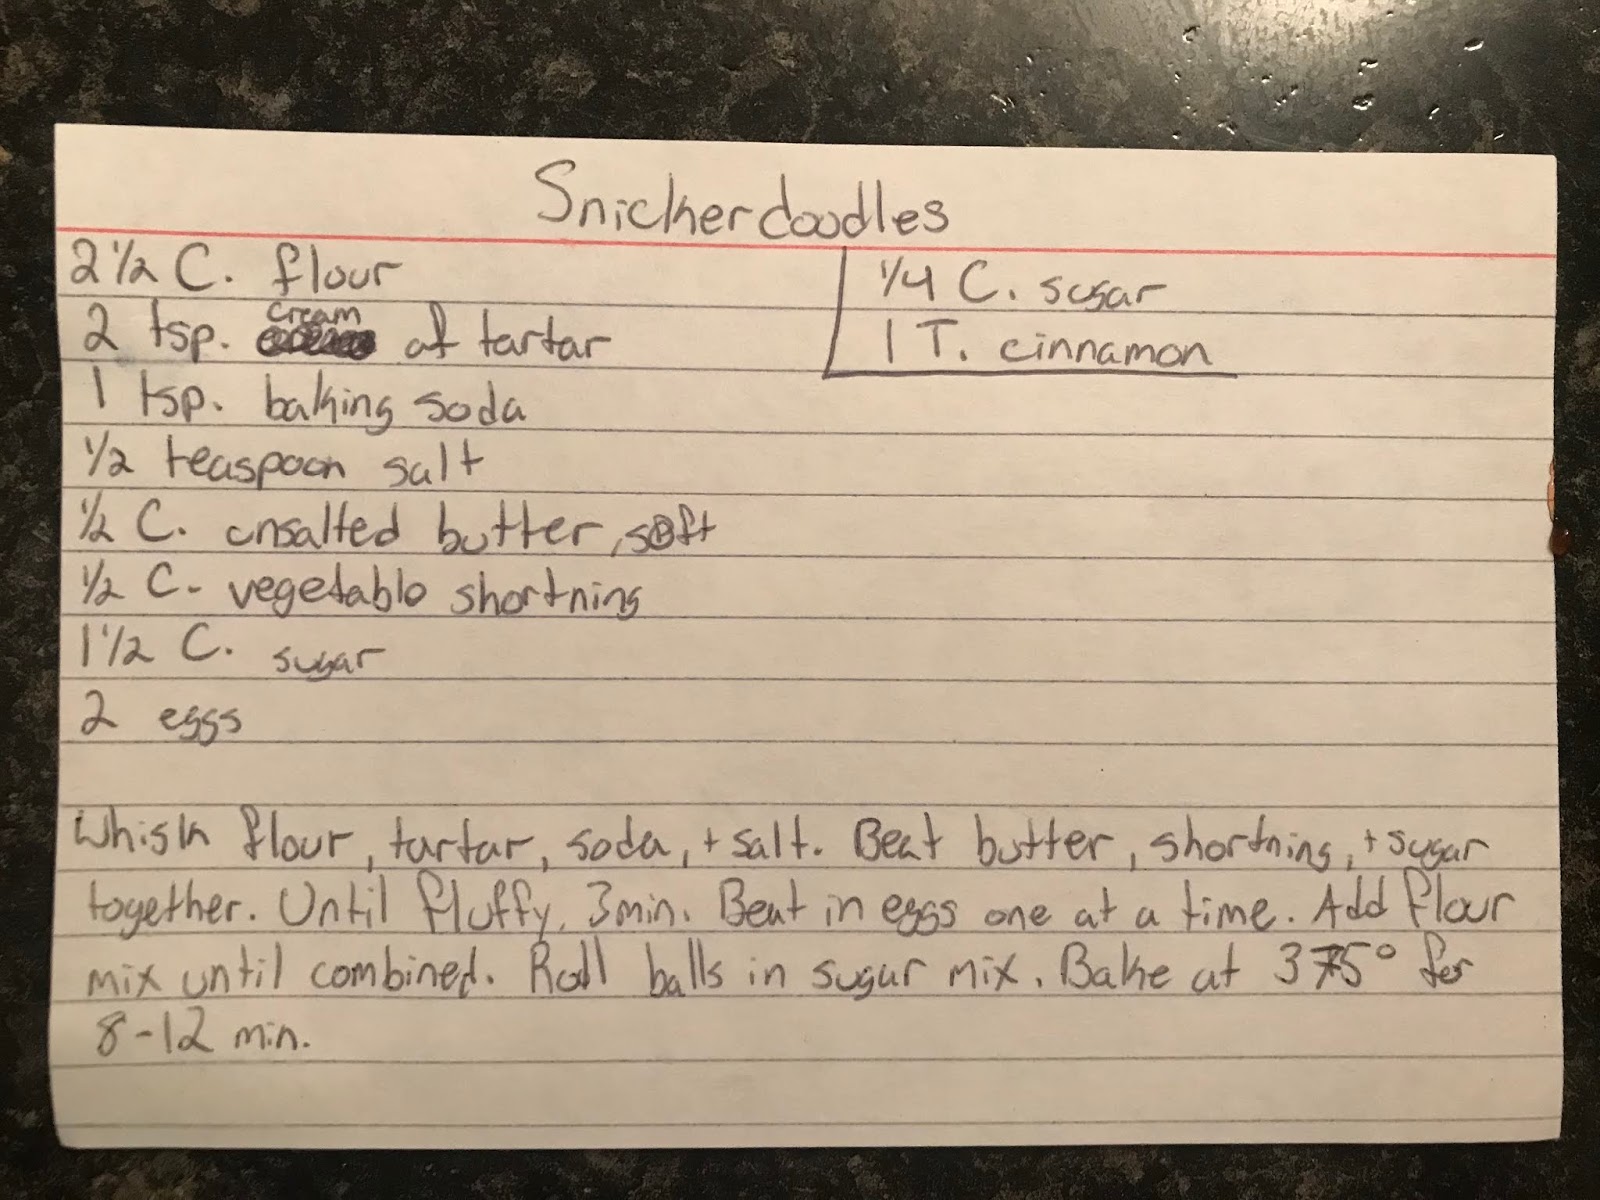 Snickerdoodles
2 1/2 C. flour
2 tsp. cream of tartar
1 tsp. baking soda
1/2 teaspoon salt
1/2 C. unsalted butter, soft
1/2 C. vegetable shortning
1 1/2 C. sugar
2 eggs
1/4 C. sugar
1 T. cinnamon
Whisk flour, tartar, soda, + salt. Beat butter, shortning, + sugar
together. Until fluffy, 3 min. Beat in eggs one at a time. Add flour
mix until combined. Roll balls in sugar mix. Bake at 375° for
8-12 min.